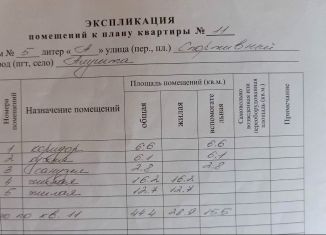 ЭКСПЛИКАЦИЯ
помещений к плану квартиры № 11
№ 5 литер « А » улица (пер., пл.)
род (пгт, село) Алушта
Номера помещений
Назначение помещений
Площадь помещений (кв.м.)
общая
жилая
вспомогательная
Самовольно возведенная или переоборудованная площадь (кв.м.)
Примечание
1 коридор 6.6 6.6
2 кухня 6.1 6.1
3 санузел 2.8 2.8
4 жилая 16.2 16.2
5 жилая 12.7 12.7
по кв. 11 44.4 28.9 15.5